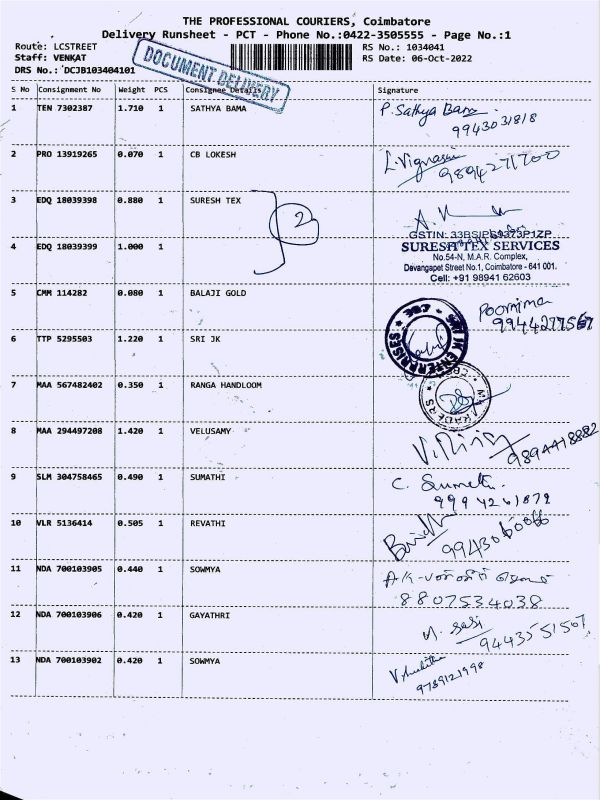 THE PROFESSIONAL COURIERS, Coimbatore
Delivery Runsheet - PCT - Phone No.:0422-3505555 - Page No.:1
Route: LCSTREET
Staff: VENKAT
DRS No.: DCJB103404101
RS No.: 1034041
RS Date: 06-Oct-2022
DOCUMENT DELIVERY
S No Consignment No Weight PCS Consignee Details Signature
1 TEN 7302387 1.710 1 SATHYA BAMA P. Sathya Bama
9943031818
2 PRO 13919265 0.070 1 CB LOKESH
9894271700
3 EDQ 18039398 0.880 1 SURESH TEX
2
4 EDQ 18039399 1.000 1
SURESH TEX SERVICES
No.54-N, M.A.R. Complex,
Devangapet Street No.1, Coimbatore - 641 001.
Cell: +91 98941 62603
5 CMM 114282 0.080 1 BALAJI GOLD Poornima
6 TTP 5295503 1.220 1 SRI JK
SRI JK ENTERPRISES
7 MAA 567482402 0.350 1 RANGA HANDLOOM
8 MAA 294497208 1.420 1 VELUSAMY
9894418882
9 SLM 304758465 0.490 1 SUMATHI C. Sumathi
9994261872
10 VLR 5136414 0.505 1 REVATHI
11 NDA 700103905 0.440 1 SOWMYA
8807534038
12 NDA 700103906 0.420 1 GAYATHRI M. Sasi
9443551507
13 NDA 700103902 0.420 1 SOWMYA
9789121998